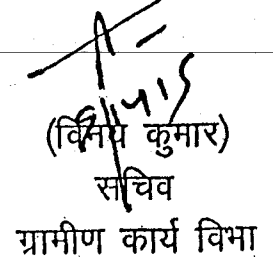 (विनय कुमार)
सचिव
ग्रामीण कार्य विभा